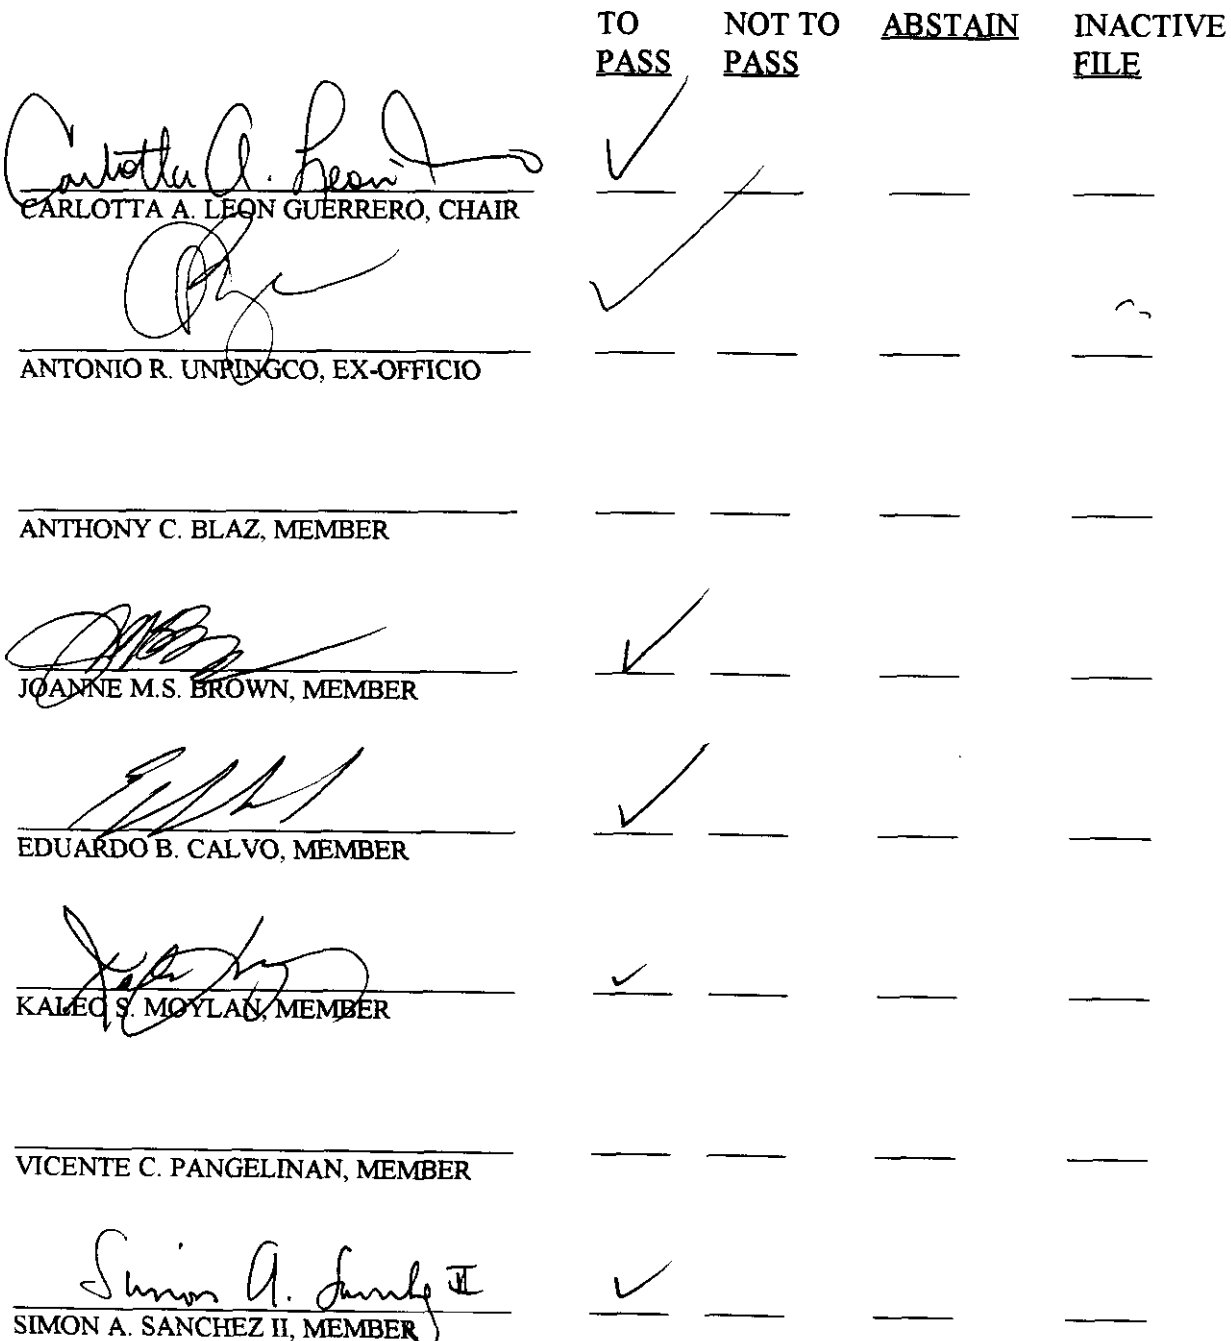 TO NOT TO ABSTAIN INACTIVE
PASS PASS FILE
Carlotta A. Leon
CARLOTTA A. LEON GUERRERO, CHAIR
ANTONIO R. UNPINGCO, EX-OFFICIO
ANTHONY C. BLAZ, MEMBER
JOANNE M.S. BROWN, MEMBER
EDUARDO B. CALVO, MEMBER
KALEO S. MOYLAN, MEMBER
VICENTE C. PANGELINAN, MEMBER
Simon A. Sanchez II
SIMON A. SANCHEZ II, MEMBER